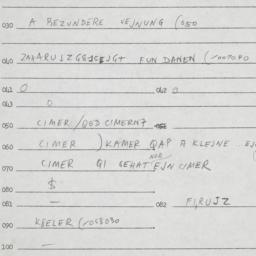 030 A BEZUNDERE VEJNUNG (050
040 FUN DANEN (/007080
041 0 042 0
043 0
050 CIMER /QED CIMERN7
060 CIMER )KAMER QAP A KLEJNE
070 CIMER QI GEHAT NOR EJN CIMER
080 $
081 — 082 FIRUJZ
090 KEELER (/058030
100 —